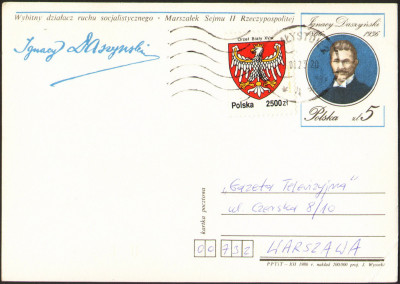 Wybitny działacz ruchu socjalistycznego - Marszałek Sejmu II Rzeczypospolitej
Ignacy Daszyński
1866 1936
Ignacy Daszyński
Orzeł Biały XVIw
Polska 2500zł
Polska zł 5
kartka pocztowa
„Gazeta Telewizyjna"
ul. Czerska 8/10
00 732 WARSZAWA
PPTiT - XII 1986 r. nakład 200/000 proj. J. Wysocki